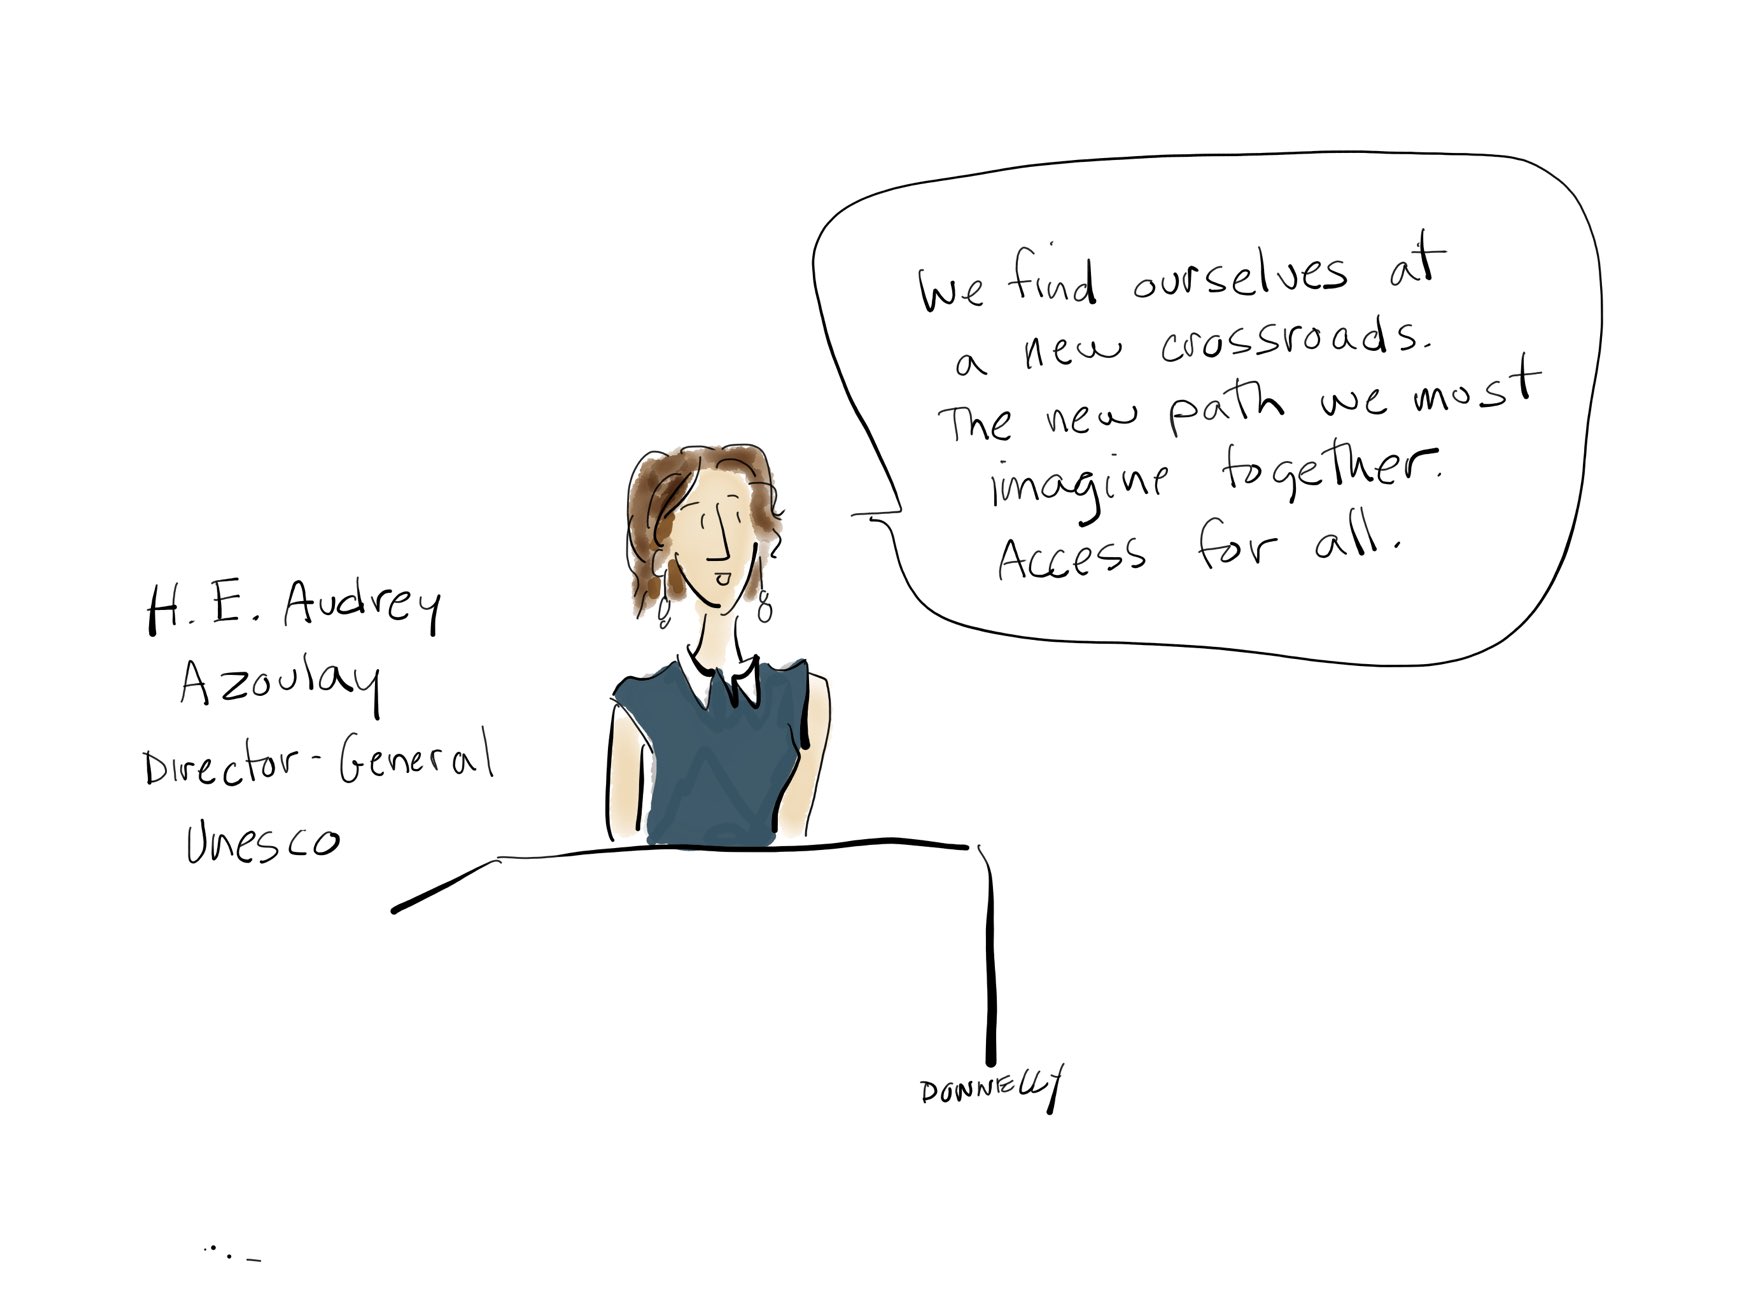 We find ourselves at
a new crossroads.
The new path we most
imagine together.
Access for all.
H. E. Audrey
Azoulay
Director-General
Unesco
DONNELLY